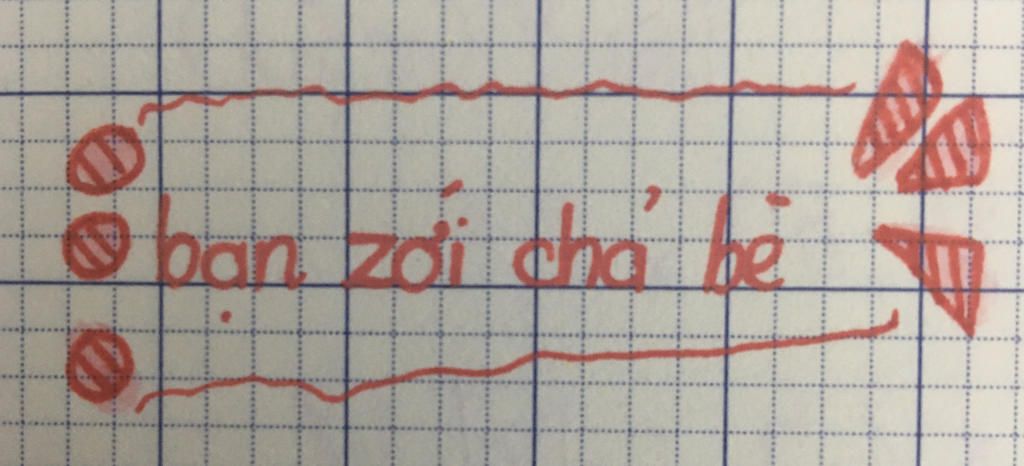 bạn zới chả bè